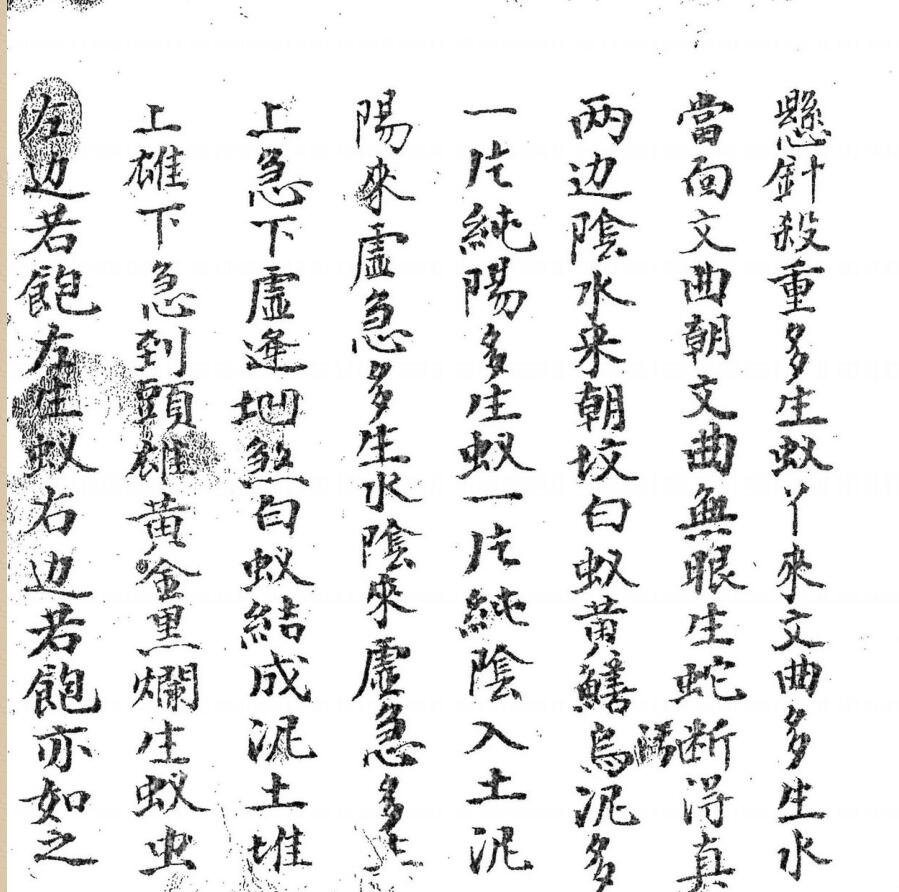 懸針殺重多生蚁丫來文曲多生水
當面文曲朝文曲無眼生蛇断淂真
两边陰水来朝坟白蚁黄鱔烏泥多
一片純陽多生蚁一片純陰入土泥
陽來虛急多生水陰來虛急多
上急下虛逢地煞白蚁結成泥土堆
上雄下急到頭雄黄金黑爛生蚁虫
左边若飽左生蚁右边若飽亦如之